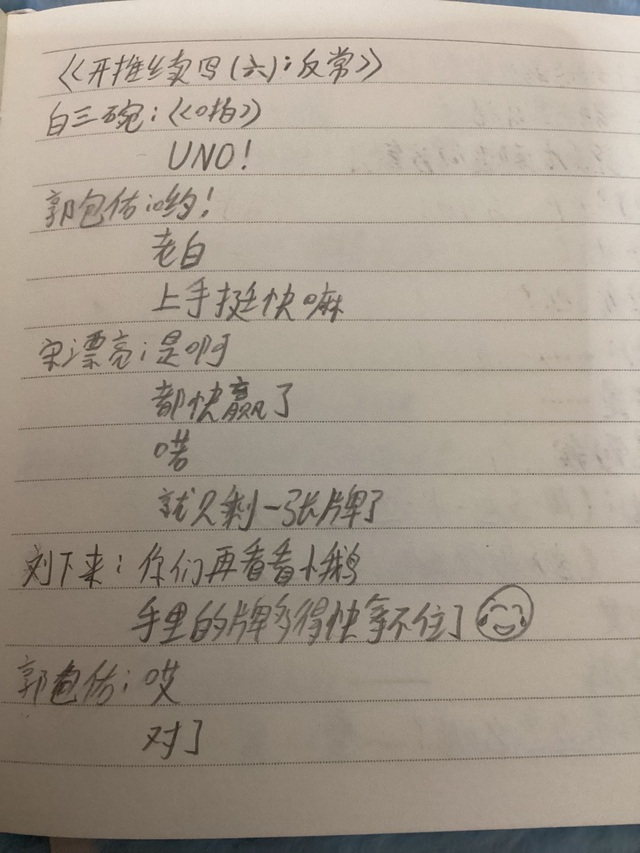 《开推续写(六):反常》
白三碗:《口拍》
UNO!
郭包佑:哟!
老白
上手挺快嘛
宋漂亮:是啊
都快赢了
喏
就只剩一张牌了
刘下来:你们再看看小鹅
手里的牌多得快拿不住了
郭包佑:哎
对了